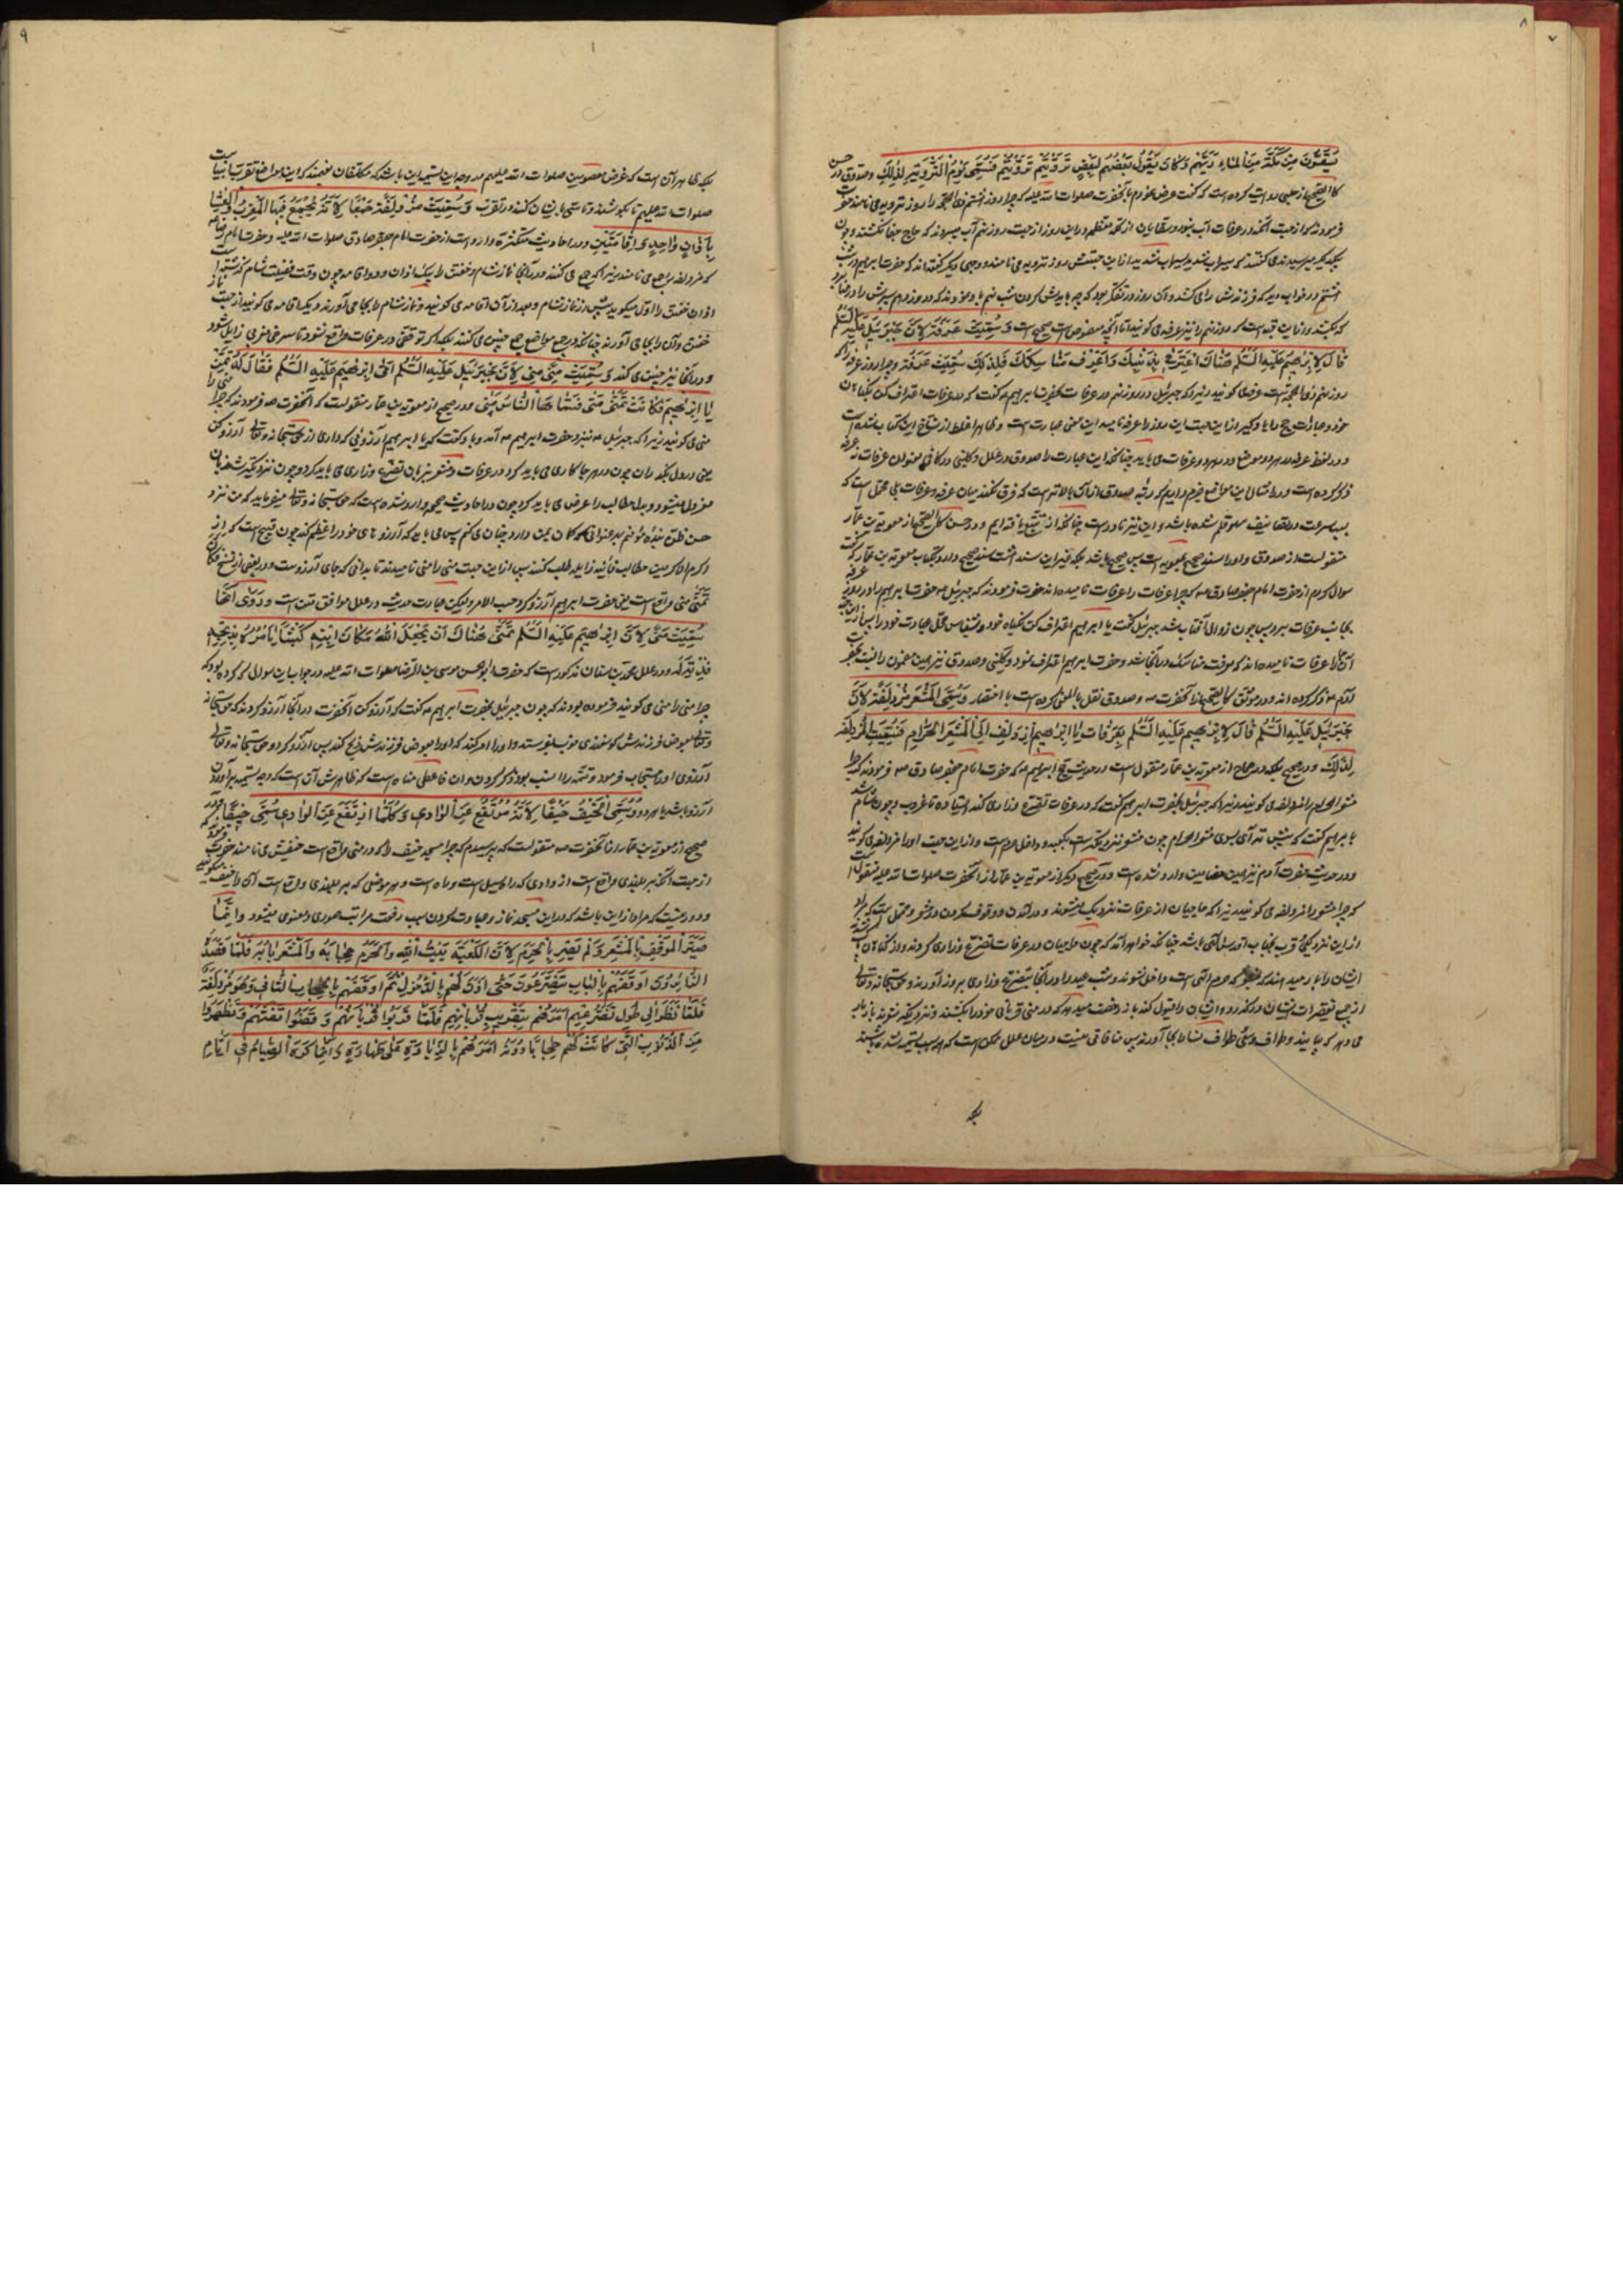 يَسْتَقُونَ مِنْ مَكَّةَ مِنَ الْمَاءِ رَيَّهُمْ وَكَانَ يَقُولُ بَعْضُهُمْ لِبَعْضٍ تَرَوَّيْتُمْ تَرَوَّيْتُمْ فَسُمِّيَ يَوْمُ التَّرْوِيَةِ لِذٰلِكَ وصدوق در حسن
كالصحيح از حلبی روایت کرده است که گفت عرض نمودم بآنحضرت صلوات الله علیه که چرا روز هشتم ذی الحجه را روز ترویه می نامند حضرت
فرمودند که از جهت آنکه در عرفات آب نبود و سقایان از مکه معظمه در این روز از جهت روز نهم آب میبردند که حاج
یکدیگر می گفتند که سیراب شدید سیراب شدید از این جهتش روز ترویه می نامند و وجهی دیگر گفته اند که حضرت ابرهیم در شب
هشتم در خواب دید که فرزندش را می کشد و آن روز در تفکر بود که چه بایدش کردن شب نهم
که بکشند و روز نهم را نیز عرفه می گویند اما آنچه منصوص است صحیح است وَ سُمِّيَتْ عَرَفَةُ لِاَنَّ جَبْرَئِيلَ عَلَيْهِ السَّلٰم
قَالَ لِاِبْرٰهِيمَ عَلَيْهِ السَّلٰم هُنَاكَ اعْتَرِفْ بِذَنْبِكَ وَاعْرِفْ مَنَاسِكَكَ فَلِذٰلِكَ سُمِّيَتْ عَرَفَةَ و چرا روز عرفه را که
روز نهم ذی الحجه است عرفه می گویند زیرا که جبرئیل در روز نهم در عرفات بحضرت ابرهیم گفت که در عرفات اعتراف کن بگناهان
خود و عبادات حج را یاد گیر از این جهت این روز را عرفه نامید این معنی عبارت است و ظاهرا غلط از نساخ این کتاب شده است
و در لفظ عرفه در هر دو موضع و در هر دو عرفات می باید چنانکه این عبارت را صدوق در علل و کلینی در کافی بعنوان عرفات نه عرفه
ذکر کرده است و در امثال این مواضع جزم داریم که رتبه صدوق از آن بالاتر است که فرق نکند میان عرفه و عرفات بلی محتمل است که
بسبب سرعت در تصانیف سهو قلم شده باشد و این نیز نادر است چنانکه از تتبع یافته ایم و در حسن کالصحیح از معویه بن عمار
منقولست از صدوق و اورا سند صحیح بمعویه است پس صحیح باشد بلکه غیر این سند هشت سند صحیح دارد بکتاب معویه بن عمار که گفت
سوال کردم از حضرت امام جعفر صادق که چرا عرفات را عرفات نامیده اند حضرت فرمودند که جبرئیل حضرت ابرهیم را در روز عرفه
بجانب عرفات برد پس چون زوال آفتاب شد جبرئیل گفت یا ابرهیم اعتراف کن بگناه خود و بشناس محل عبادت خود را پس از این جهت
آن را عرفات نامیده اند که معرفت مناسک در آنجا شد و حضرت ابرهیم اعتراف نمود و کلینی و صدوق نیز همین مضمون را نسبت بحضرت
آدم ذکر کرده اند و در موثق کالصحیح از آنحضرت و صدوق نقل بالمعنی کرده است با اختصار وَ سُمِّيَ الْمَشْعَرُ مُزْدَلِفَةَ لِاَنَّ
جَبْرَئِيلَ عَلَيْهِ السَّلٰم قَالَ لِاِبْرٰهِيمَ عَلَيْهِ السَّلٰم بِعَرَفَاتٍ يَا اِبْرٰهِيمُ اِزْدَلِفْ اِلَى الْمَشْعَرِ الْحَرَامِ فَسُمِّيَتِ الْمُزْدَلِفَةَ
لِذٰلِكَ و در صحیح بلکه در صحاح از معویه بن عمار منقولست در حدیث حج ابرهیم که حضرت امام جعفر صادق فرمودند که چرا
مشعر الحرام را مزدلفه می گویند زیرا که جبرئیل بحضرت ابرهیم گفت که در عرفات تضرع و زاری کند ایستاده تا غروب و چون شام شد
با ابرهیم گفت که پیش تر آی بسوی مشعر الحرام چون مشعر نزدیکتر است بکعبه و داخل حرم است و از این جهت اورا مزدلفه می گویند
و در حدیث حضرت آدم نیز همین مضامین وارد شده است و در صحیح دیگر از معویه بن عمار از آنحضرت صلوات الله علیه منقولست
که چرا مشعر را مزدلفه می گویند زیرا که حاجیان از عرفات نزدیک میشوند و در آمدن و وقوف کردن در مشعر و محتمل است که مراد
از این نزدیکی قرب بجناب اقدس الهی باشد چنانکه خواهد آمد که چون حاجیان در عرفات تضرع و زاری کردند و از گناهان
ایشان را بار میدهند که حرم الهی است داخل شوند و شب عید را در آنجا بتضرع و زاری بروز آورند و حق سبحانه و تعالی
از جمیع تقصیرات ایشان درگذرد و ایشان را قبول کند باز رخصت میدهد که در منی قربانی خود را بکشند و نزدیکتر شوند باز بار
می دهد که بیایند و طواف و سعی و طواف نسا را بجا آورند پس منافاتی نیست در میان علل ممکن است که هر سبب تسمیه شده باشند
بلکه
بلکه ظاهر آن است که غرض معصومین صلوات الله علیهم در وجه این تسمیه این باشد که مکلفان بفهمند که این مواضع تقرب انبیا
صلوات الله علیهم تا بکوشند و تاسی بایشان کنند در تقرب وَ سُمِّيَتْ مُزْدَلِفَةُ جَمْعًا لِاَنَّهُ يُجْمَعُ فِيهَا الْمَغْرِبُ وَ الْعِشَاءُ
بِاَذَانٍ وَاحِدٍ وَ اِقَامَتَيْنِ و در احادیث متکثره وارد است از حضرت امام جعفر صادق صلوات الله علیه و حضرت امام رضا
که مزدلفه را جمع می نامند زیرا که جمع می کنند در آنجا نماز شام و خفتن را بیک اذان و دو اقامه چون وقت فضیلت شام گذشته است
اذان خفتن را اول میگوید پیش از نماز شام و بعد از آن اقامه می گویند و نماز شام را بجا می آورند و یک اقامه می گویند از جهت نماز
خفتن و آن را بجا می آورند چنانکه در جمیع مواضع جمع چنین می کنند بلکه اگر توقفی در عرفات واقع شود تا سرخی مغربی زایل شود
در آنجا نیز چنین می کند وَ سُمِّيَتْ مِنًى مِنًى لِاَنَّ جَبْرَئِيلَ عَلَيْهِ السَّلٰم اَتٰى اِبْرٰهِيمَ عَلَيْهِ السَّلٰم فَقَالَ لَهُ تَمَنَّ
يَا اِبْرٰهِيمُ فَكَانَتْ تُسَمَّى مِنًى فَسَمَّاهَا النَّاسُ مِنًى و در صحیح از معویه بن عمار منقولست که آنحضرت فرمودند که چرا منی را
منی می گویند زیرا که جبرئیل نزد حضرت ابرهیم آمد و باو گفت که یا ابرهیم آرزوئی که داری از حق سبحانه و تعالی آرزو کن
یعنی در دل بگذران چون در هر جا کاری می باید کرد در عرفات و مشعر بزبان تضرع و زاری می باید کرد و چون نزدیکتر شد بزبان
معزول میشود و بدل مطالب را عرض می باید کرد چون در احادیث صحیحه وارد شده است که حق سبحانه و تعالی میفرماید که من نزد
حسن ظن بنده مؤمنم بهر عنوانی که گمان بمن دارد چنان می کنم پس می باید که آرزوهای خود را عظیم کند چون قبیح است که از
اکرم الاکرمین مطالب فانیه زایله طلب کنند پس از این جهت منی را منی نامیدند تا بدانی که جای آرزوست و در بعضی از نسخ فکان
تَمَنَّى منی واقع است یعنی حضرت ابرهیم آرزو کرد حسب الامر و لیکن عبارت حدیث در علل موافق متن است وَ رُوِيَ اَنَّهَا
سُمِّيَتْ مِنًى لِاَنَّ اِبْرٰهِيمَ عَلَيْهِ السَّلٰم تَمَنَّى هُنَاكَ اَنْ يَجْعَلَ اللّٰهُ مَكَانَ ابْنِهِ كَبْشًا يَأْمُرُهُ بِذَبْحِهِ
فِدْيَةً لَهُ و در علل محمد بن سنان مذکور است که حضرت ابوالحسن موسی بن الرضا صلوات الله علیه در جواب این سوال که کرده بود که
چرا منی را منی می گویند فرموده بودند که چون جبرئیل بحضرت ابرهیم گفت که آرزو کن آنحضرت در آنجا آرزو کردند که حق سبحانه
و تعالی بعوض فرزندش گوسفندی و اورا امر کند که اورا بعوض فرزندش ذبح کند پس آرزو کرد و حق سبحانه و تعالی
آرزوی اورا مستجاب فرمود و تتمه را
آرزو باشد یا هر دو وَ سُمِّيَ الْخَيْفُ خَيْفًا لِاَنَّهُ مُرْتَفِعٌ عَنِ الْوَادِي وَ كُلَّمَا ارْتَفَعَ عَنِ الْوَادِي سُمِّيَ خَيْفًا
صحیح از معویه بن عمار از آنحضرت منقولست که پرسیدم که چرا مسجد خیف را که در منی واقع است خیفش می نامند حضرت فرمودند که
از جهت آنکه بر بلندی واقع است از وادی که راه سیل است و هر موضعی که بر بلندی واقع است آن را خیف میگویند
و دور نیست که مراد از این باشد که در این مسجد نماز و عبادت کردن سبب رفعت مراتب صوری و معنوی میشود وَ اِنَّمَا
صُيِّرَ الْمَوْقِفُ بِالْمَشْعَرِ وَ لَمْ يُصَيَّرْ بِالْحَرَمِ لِاَنَّ الْكَعْبَةَ بَيْتُ اللّٰهِ وَ الْحَرَمَ حِجَابُهُ وَ الْمَشْعَرَ بَابُهُ فَلَمَّا قَصَدَهُ
الزَّائِرُونَ اَوْقَفَهُمْ بِالْبَابِ يَتَضَرَّعُونَ حَتَّى اَذِنَ لَهُمْ بِالدُّخُولِ ثُمَّ اَوْقَفَهُمْ بِالْحِجَابِ الثَّانِي وَ هُوَ مُزْدَلِفَةُ
فَلَمَّا نَظَرَ اِلٰى طُولِ تَضَرُّعِهِمْ اَمَرَهُمْ بِتَقْرِيبِ قُرْبَانِهِمْ فَلَمَّا قَرَّبُوا قُرْبَانَهُمْ وَ قَضَوْا تَفَثَهُمْ وَ تَطَهَّرُوا
مِنَ الذُّنُوبِ الَّتِي كَانَتْ لَهُمْ حِجَابًا دُونَهُ اَمَرَهُمْ بِالزِّيَارَةِ عَلٰى طَهَارَةٍ وَ اِنَّمَا كُرِهَ الصِّيَامُ فِي اَيَّامِ